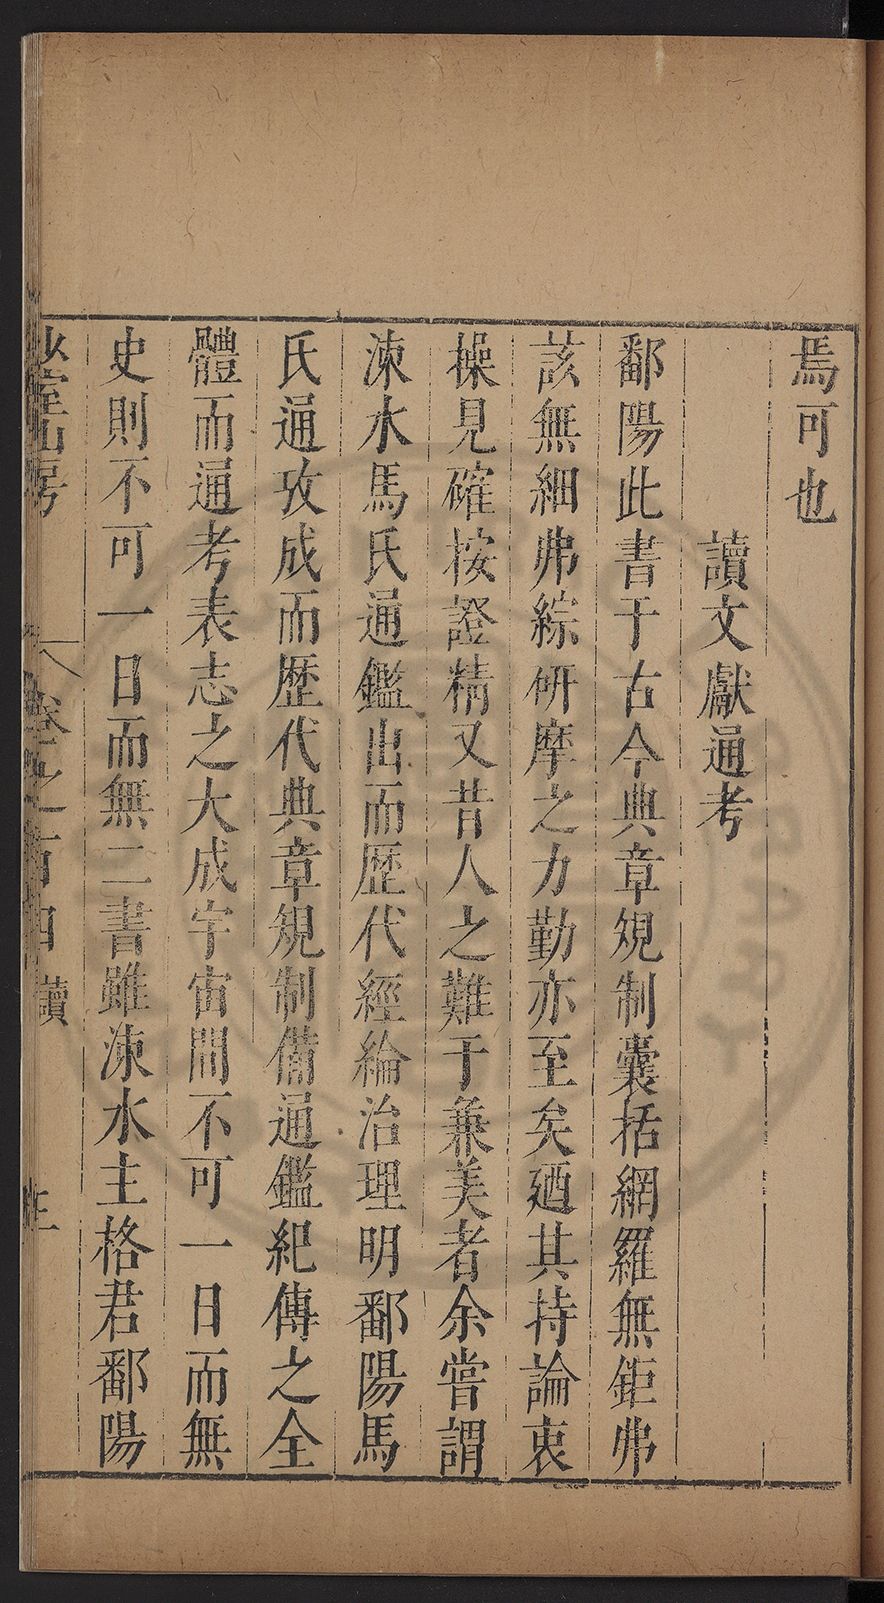 焉可也
讀文獻通考
鄱陽此書于古今典章規制囊括網羅無鉅弗
該無細弗綜研摩之力勤亦至矣廼其持論衷
操見確按證精又昔人之難于兼美者余嘗謂
涑水馬氏通鑑出而歷代經綸治理明鄱陽馬
氏通攷成而歷代典章規制備通鑑紀傳之全
體而通考表志之大成宇宙間不可一日而無
史則不可一日而無二書雖涑水主格君鄱陽
少室山房 卷之百四 讀